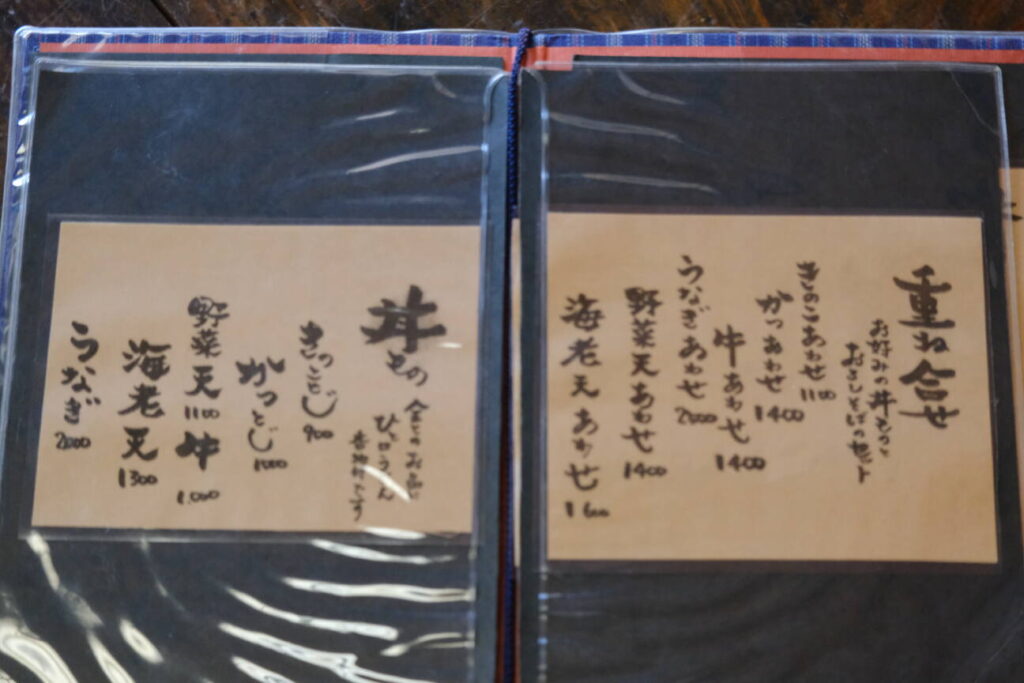 重ね合せ
お好みの丼ものと
おろしそばのセット
きのこあわせ 1100
かつあわせ 1400
牛あわせ 1400
うなぎあわせ 2000
野菜天あわせ 1400
海老天あわせ 1600
丼もの
全てのお品に
香物付です
きのことじ 900
かつとじ 1000
牛 1,000
野菜天 1100
海老天 1300
うなぎ 2000